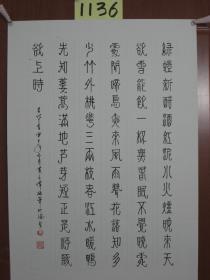 1136
綠螘新醅酒紅泥小火爐晚來天
欲雪能飲一杯無春眠不覺曉處
處聞啼鳥夜來風雨聲花落知多
少竹外桃花三兩枝春江水暖鴨
先知蔞蒿滿地蘆芽短正是河豚
欲上時